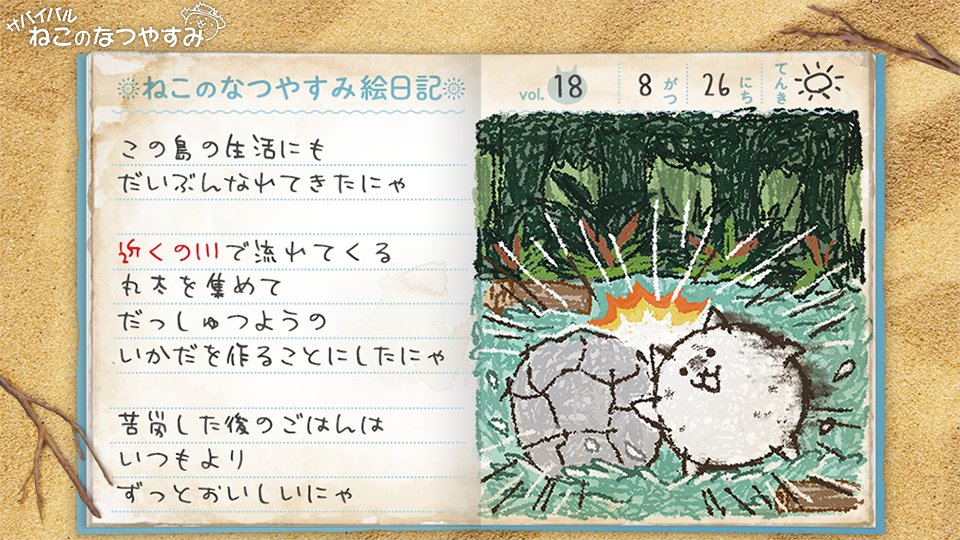 サバイバル
ねこのなつやすみ
ねこのなつやすみ絵日記
vol. 18 8がつ 26にち てんき
この島の生活にも
だいぶんなれてきたにゃ
近くの川で流れてくる
丸太を集めて
だっしゅつようの
いかだを作ることにしたにゃ
苦労した後のごはんは
いつもより
ずっとおいしいにゃ